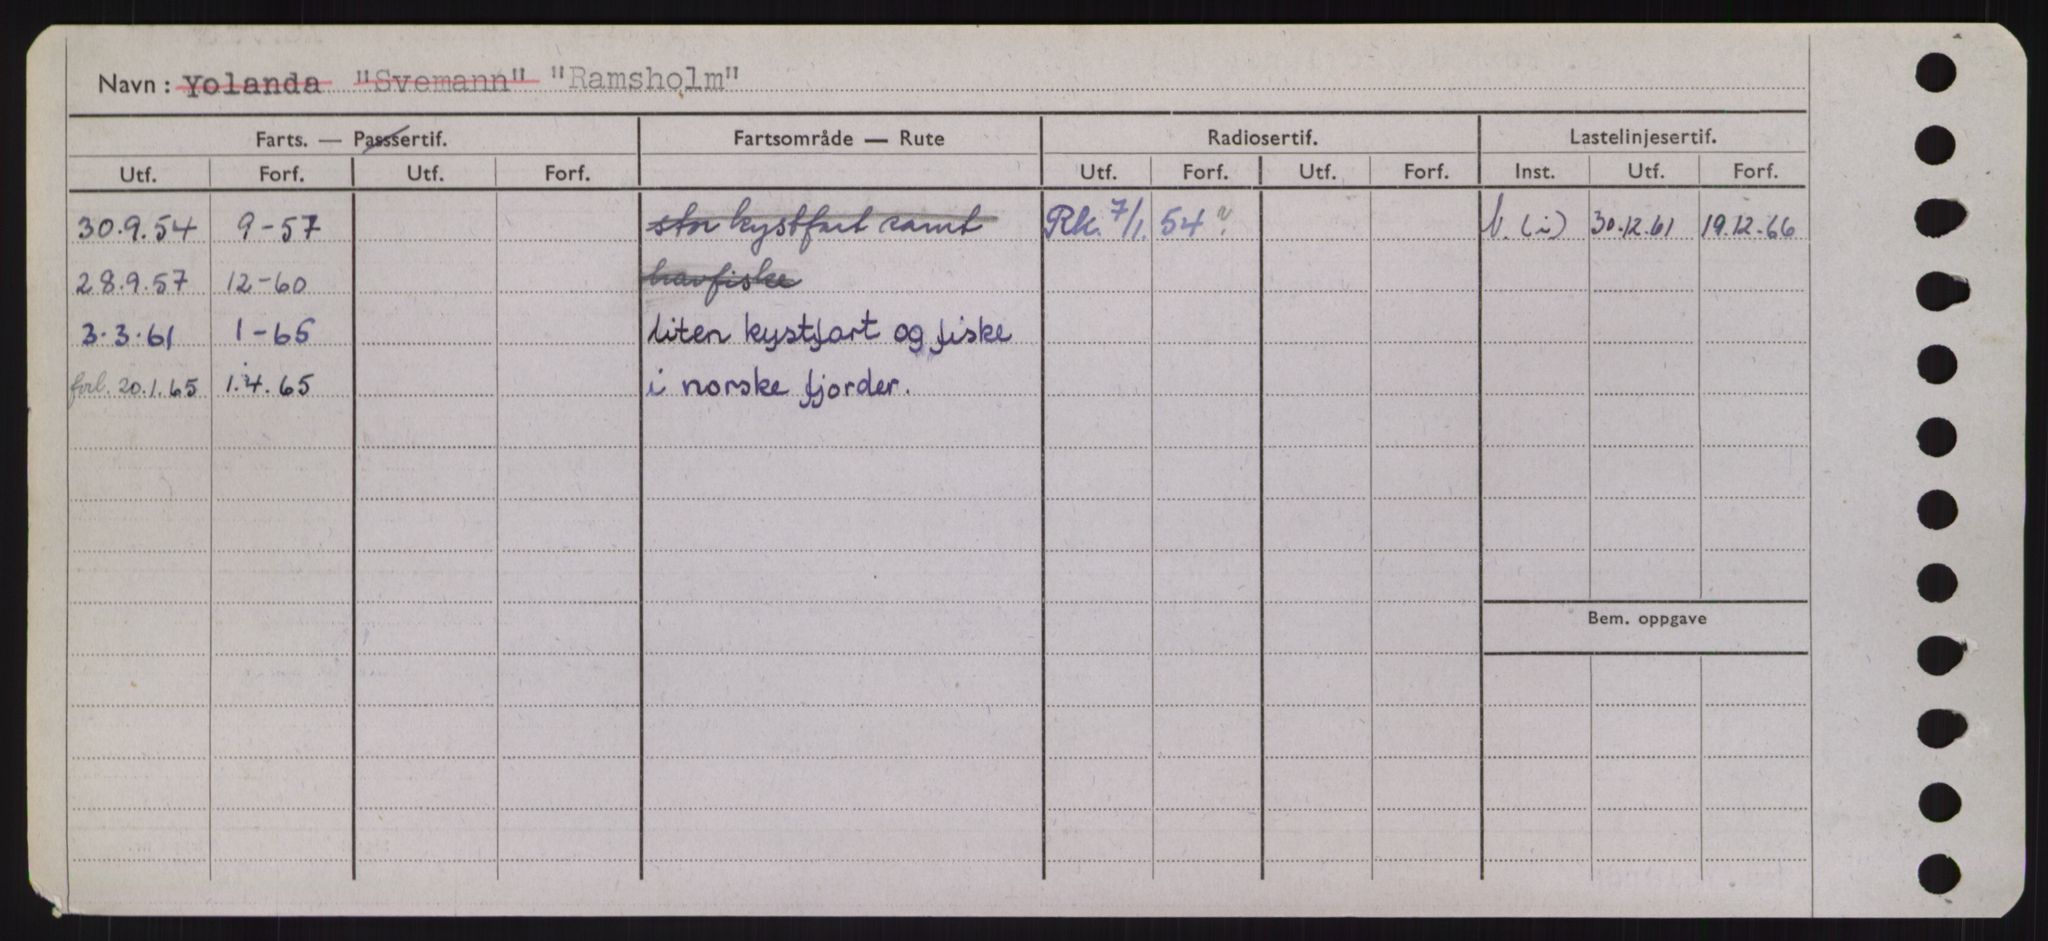 Navn: Yolanda "Svemann" "Ramsholm"
Farts. — Passsertif. Fartsområde — Rute Radiosertif. Lastelinjesertif.
Utf. Forf. Utf. Forf. Utf. Forf. Utf. Forf. Inst. Utf. Forf.
30.9.54 9-57 stor kystfart samt Rk. 7/1. 54? V. (i) 30.12.61 19.12.66
28.9.57 12-60 havfiske
3.3.61 1-65 liten kystfart og fiske
forl. 20.1.65 1.4.65 i norske fjorder.
Bem. oppgave